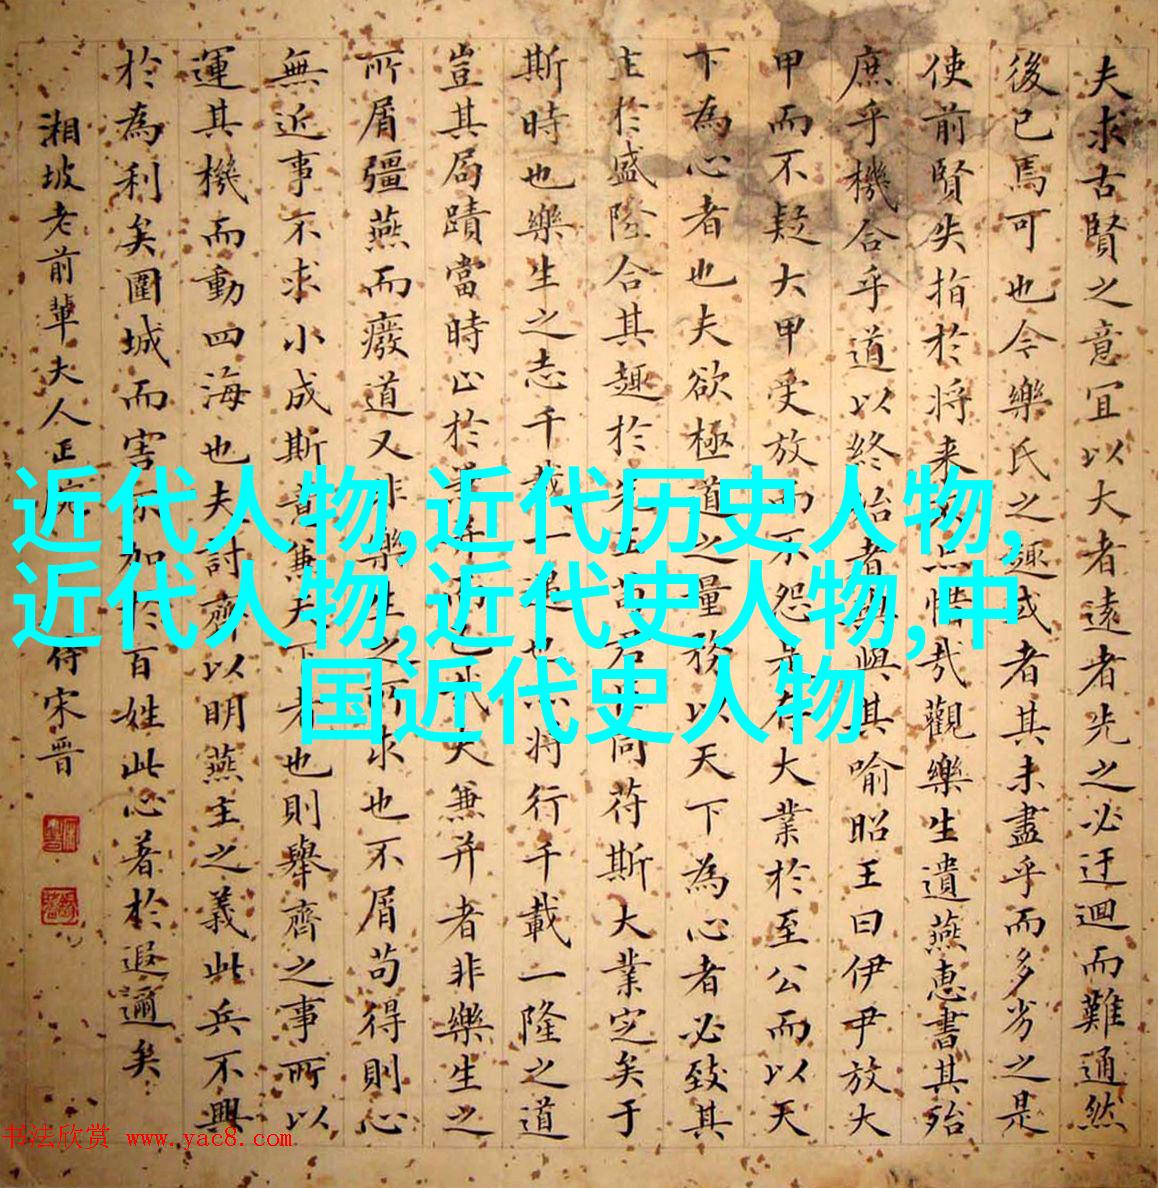 夫求古賢之意宜以大者遠者先之必迂迴而難通然
後已焉可也今樂氏之趣或者其未盡乎而多劣之是
使前賢失指於將来不惜哉觀樂生遺燕惠書其殆
庶乎機合乎道以終始者與其喻昭王曰伊尹放大
甲而不疑大甲受放而不怨是存大業於至公而以天
下為心者也夫欲極道之量務以天下為心者必致其
主於盛隆合其趣於先王苟君臣同符斯大業定矣于
斯時也樂生之志千載一遇也亦將行千載一隆之道
豈其局蹟當時止於兼并而已哉夫兼并者非樂生之
所屑彊燕而廢道又非樂生之所求也不屑苟得則心
無近事不求小成斯意兼天下者也則舉齊之事所以
運其機而動四海也夫討齊以明燕主之義此兵不興
於為利矣圍城而害不加於百姓此心著於遐邇矣
湘坡老前輩夫人正 侍宋晋
近代人物,近代历史人物,
近代人物,近代史人物,中
国近代史人物
书法欣赏 www.yac8.com